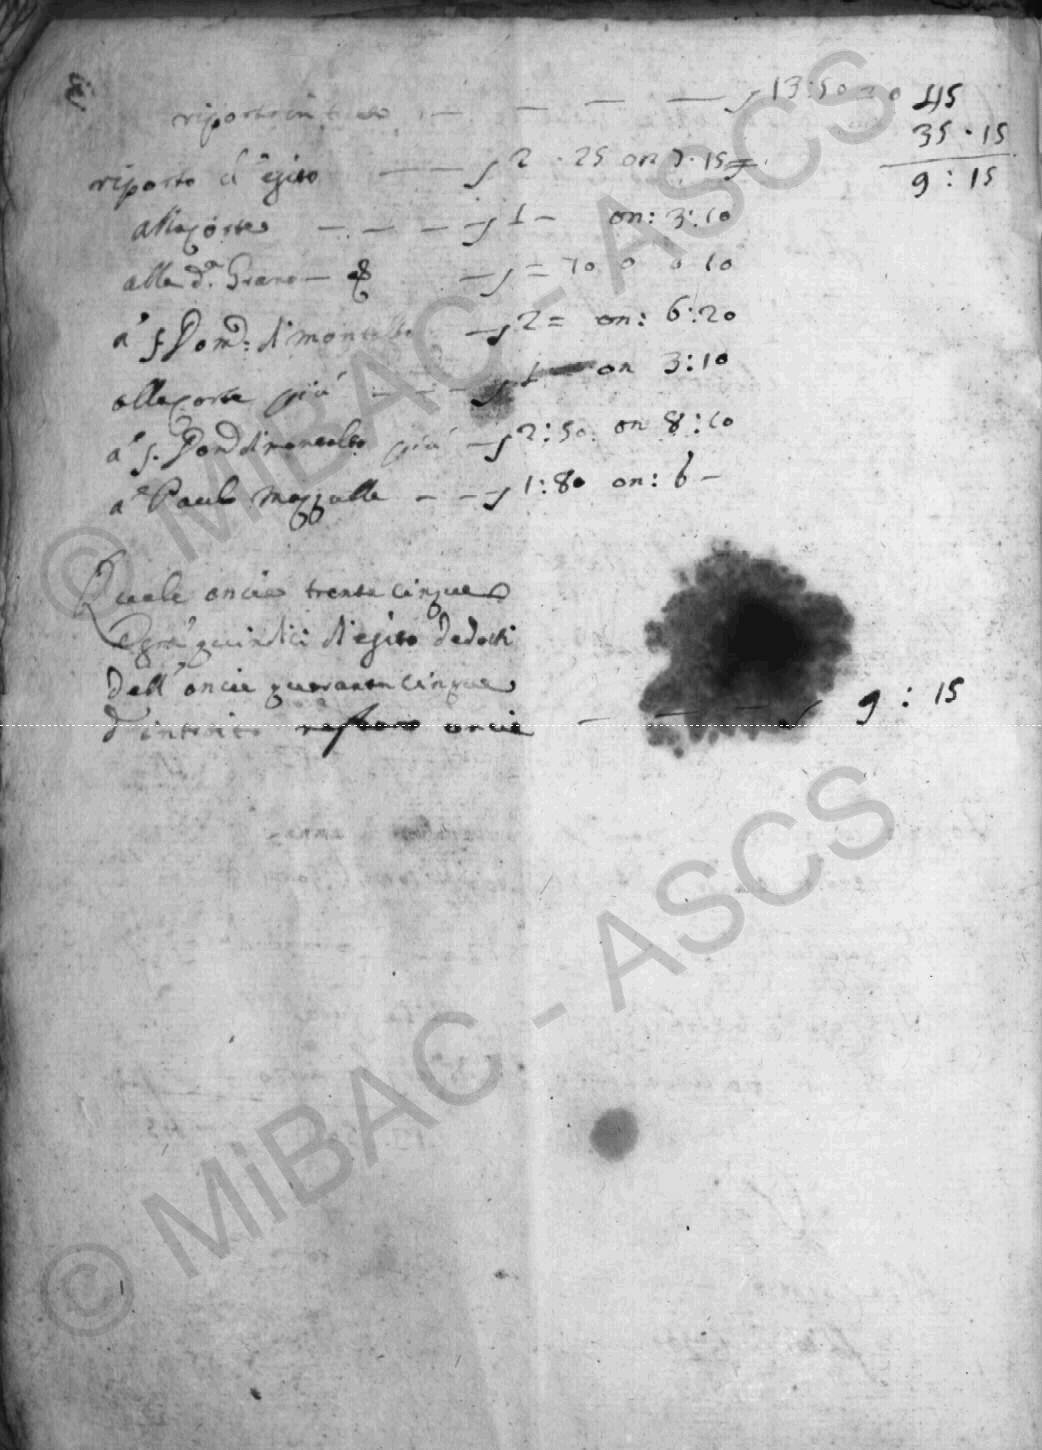 riporto — — — — 13:50 45
35 · 15
riporto d'egito — — 2 · 25 on 7 · 15
9 : 15
alla corte — — — 1 — on: 3:10
alla d.ª Grano — = 70 0 0 10
a' S Dom: di montalto — 2 = on: 6:20
alla corte più — — — 1 — on 3:10
a' S. Dom di montalto più — 2:50 on 8:10
a' Paul Mazzulla — — 1:80 on: 6 —
Quale oncie trenta cinque
e gra' quindici d'egito dedotti
dall' oncie quaranta cinque
d'introito restano oncie — — — 9 : 15
© MiBAC - ASCS
© MiBAC - ASCS